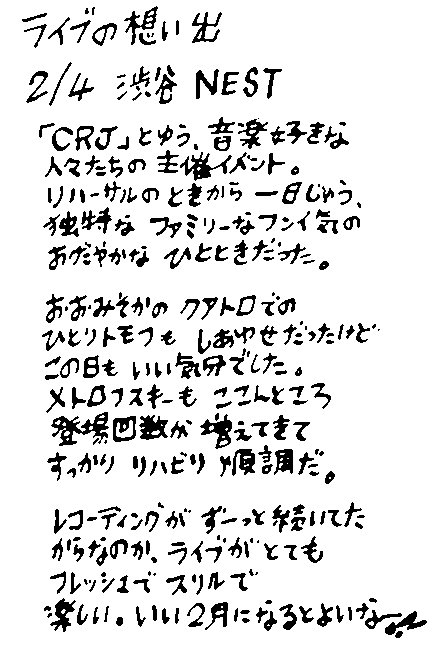 ライブの想い出
2/4 渋谷 NEST
「CRJ」とゆう、音楽好きな
人々たちの主催イベント。
リハーサルのときから一日じゅう、
独特な ファミリーなフンイ気の
おだやかな ひとときだった。
おおみそかの クアトロでの
ひとりトモフも しあわせだったけど
この日も いい気分でした。
メトロフスキーも ここんところ
登場回数が 増えてきて
すっかり リハビリ 順調だ。
レコーディングが ずーっと続いてた
からなのか、ライブがとても
フレッシュで スリルで
楽しい。いい2月になるとよいなー